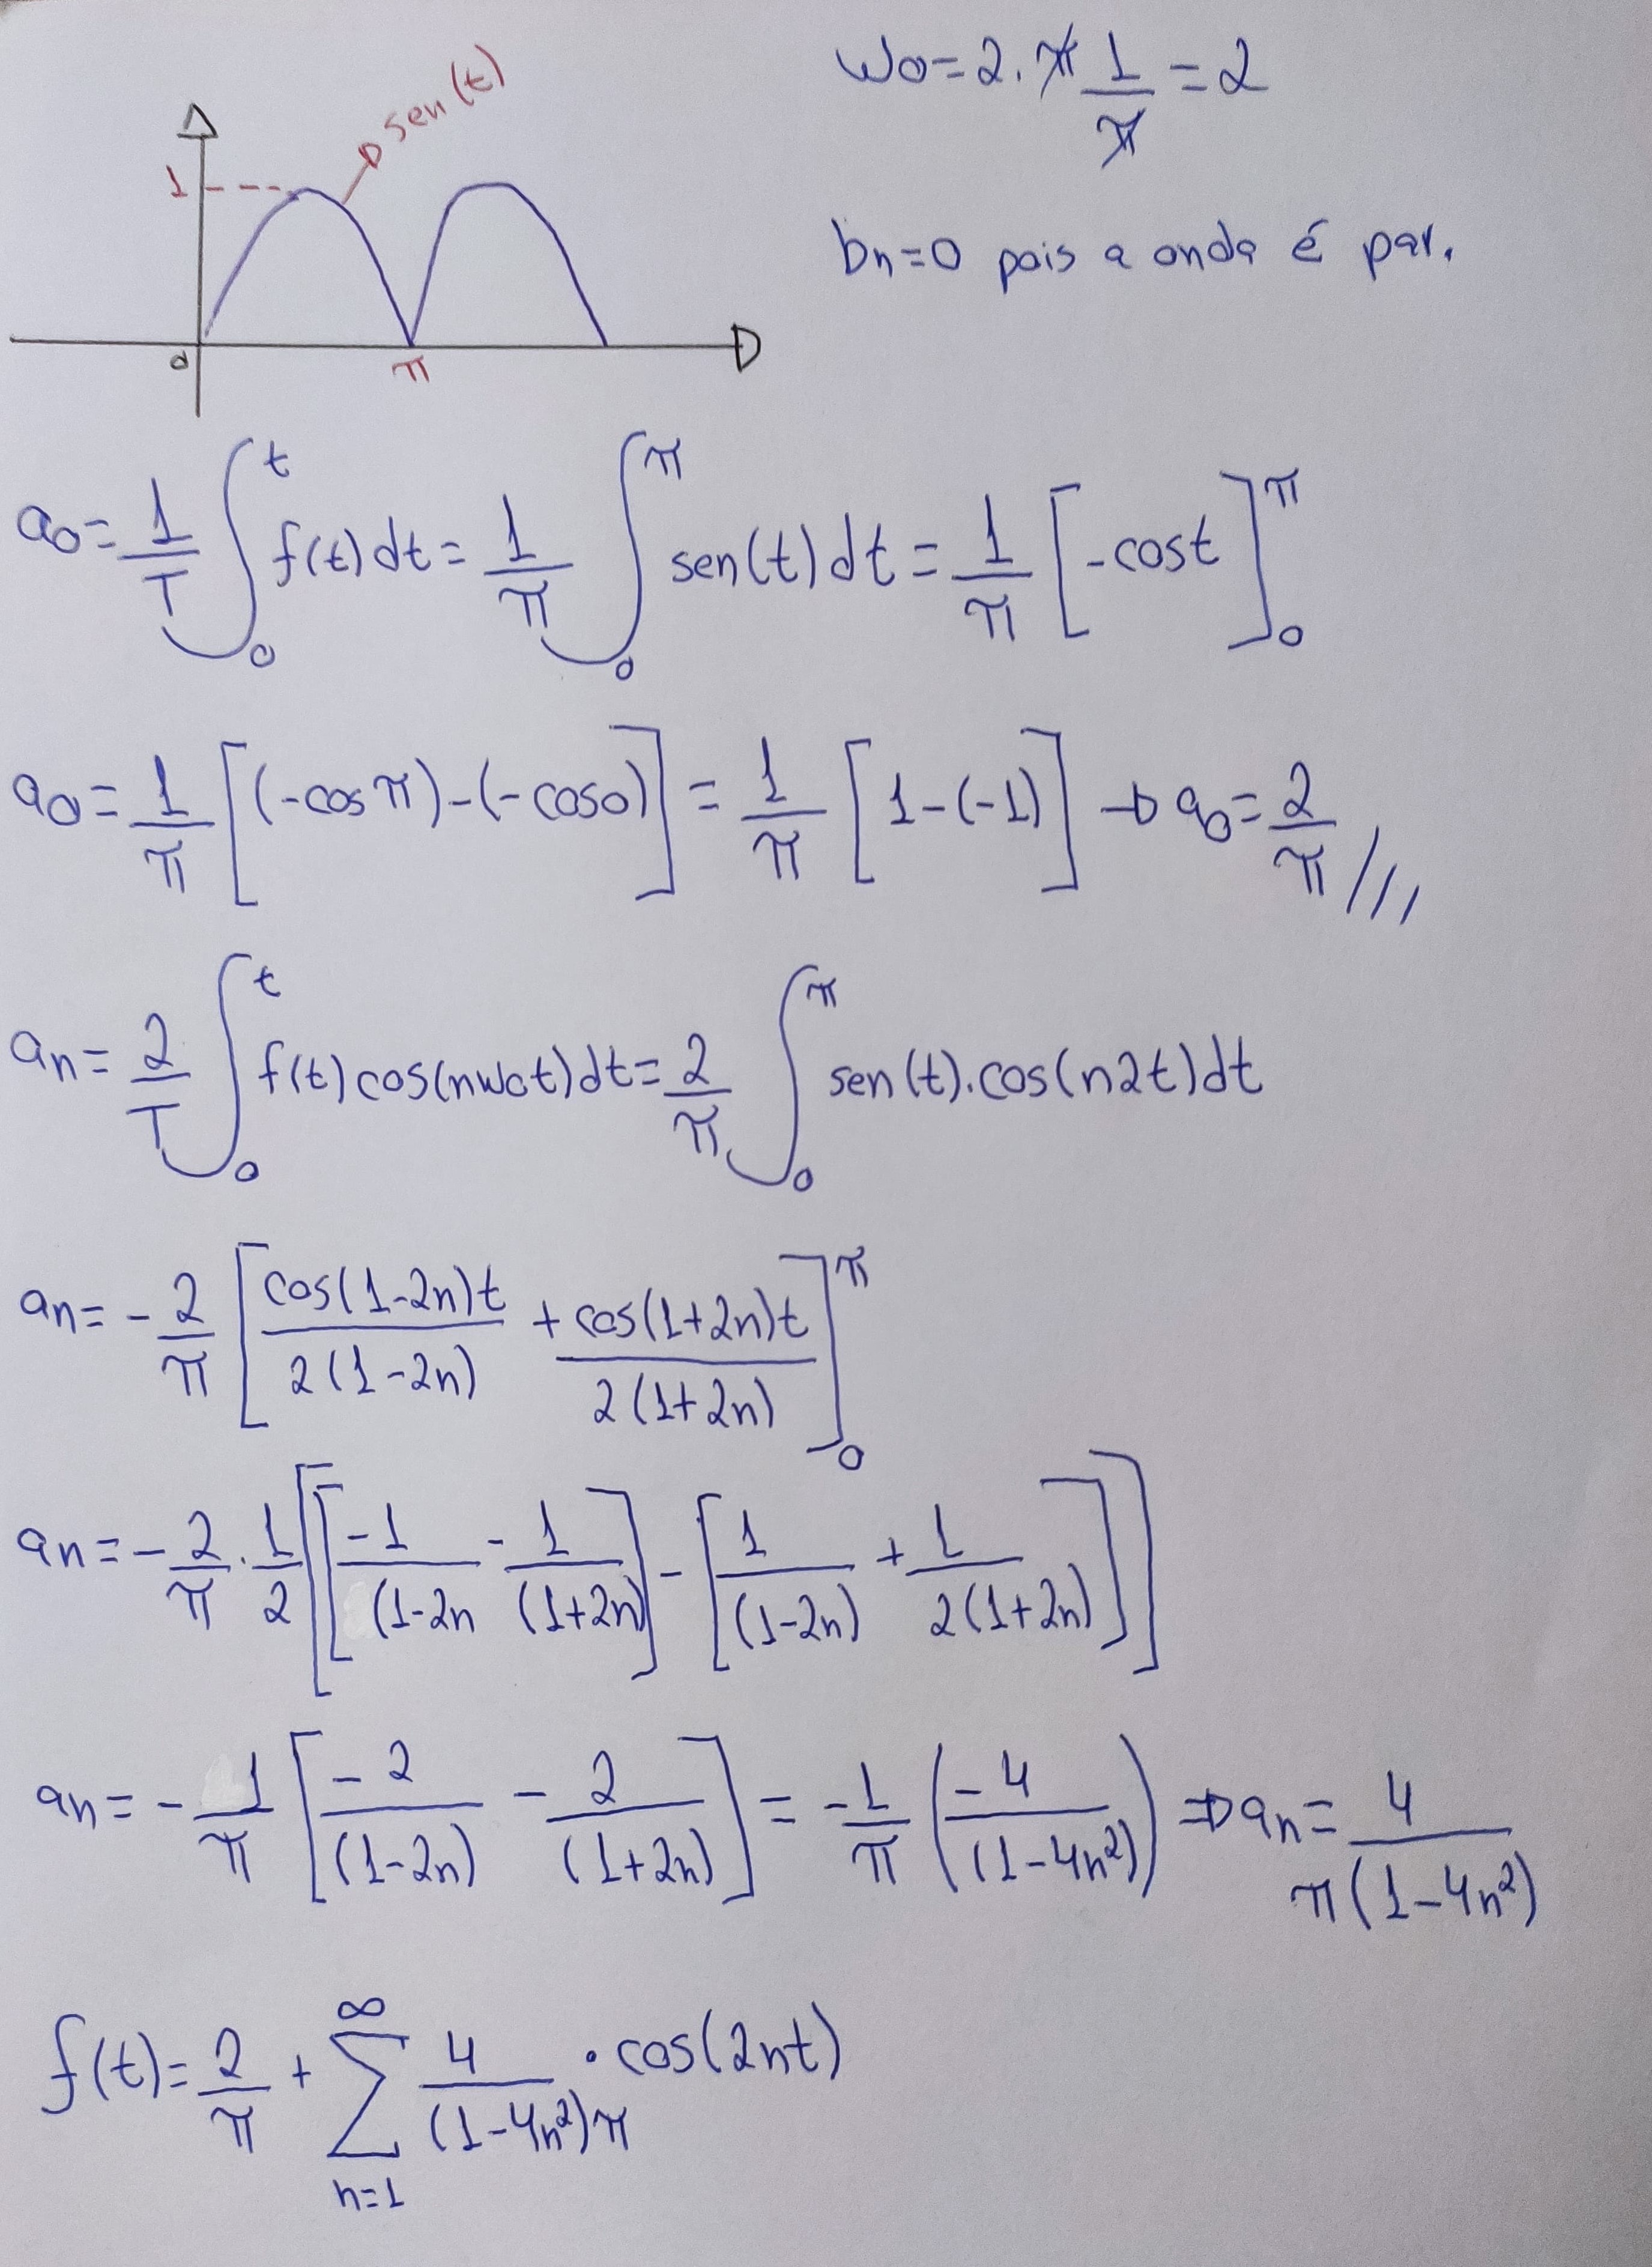 sen(t)
1
0
π
W0=2.π 1/π =2
bn=0 pois a onda é par.
a0= 1/T ∫₀ᵗ f(t)dt= 1/π ∫₀^π sen(t)dt= 1/π [-cost]₀^π
a0= 1/π [(-cosπ)-(-cos0)] = 1/π [1-(-1)] → a0= 2/π //
an= 2/T ∫₀ᵗ f(t)cos(nw0t)dt= 2/π ∫₀^π sen(t).cos(n2t)dt
an= - 2/π [cos(1-2n)t/2(1-2n) + cos(1+2n)t/2(1+2n)]₀^π
an=- 2/π . 1/2 [[-1/(1-2n - 1/(1+2n)] - [1/(1-2n) + 1/2(1+2n)]]
an= - 1/π [-2/(1-2n) - 2/(1+2n)] = -1/π (-4/(1-4n²)) ⇒ an= 4/π(1-4n²)
f(t)= 2/π + ∑_{n=1}^{∞} 4/(1-4n²)π · cos(2nt)